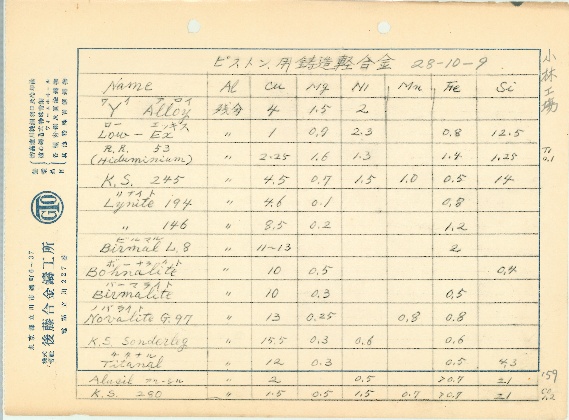 ピストン用鋳造軽合金 28-10-9
小林工場
Name Al Cu Mg Ni Mn Fe Si
"Y" Alloy 残分 4 1.5 2
ロー エッキス
Low-Ex 〃 1 0.9 2.3 0.8 12.5
R.R. 53
(Hiduminium) 〃 2.25 1.6 1.3 1.4 1.25 Ti 0.1
K.S. 245 〃 4.5 0.7 1.5 1.0 0.5 14
リナイト
Lynite 194 〃 4.6 0.1 0.8
〃 146 〃 8.5 0.2 1.2
ビルマル
Birmal L.8 〃 11-13 2
ボーナライト
Bohnalite 〃 10 0.5 0.4
バーマライト
Birmalite 〃 10 0.3 0.5
ノバライト
Novalite G.97 〃 13 0.25 0.8 0.8
K.S. Sonderleg 〃 15.5 0.3 0.6 0.6
チタナル
Titanal 〃 12 0.3 0.5 4.3
Alusil アルーシル 〃 2 0.5 >0.7 21
K.S. 280 〃 1.5 0.5 1.5 0.7 >0.7 21
GTO
株式会社 後藤合金鑄工所